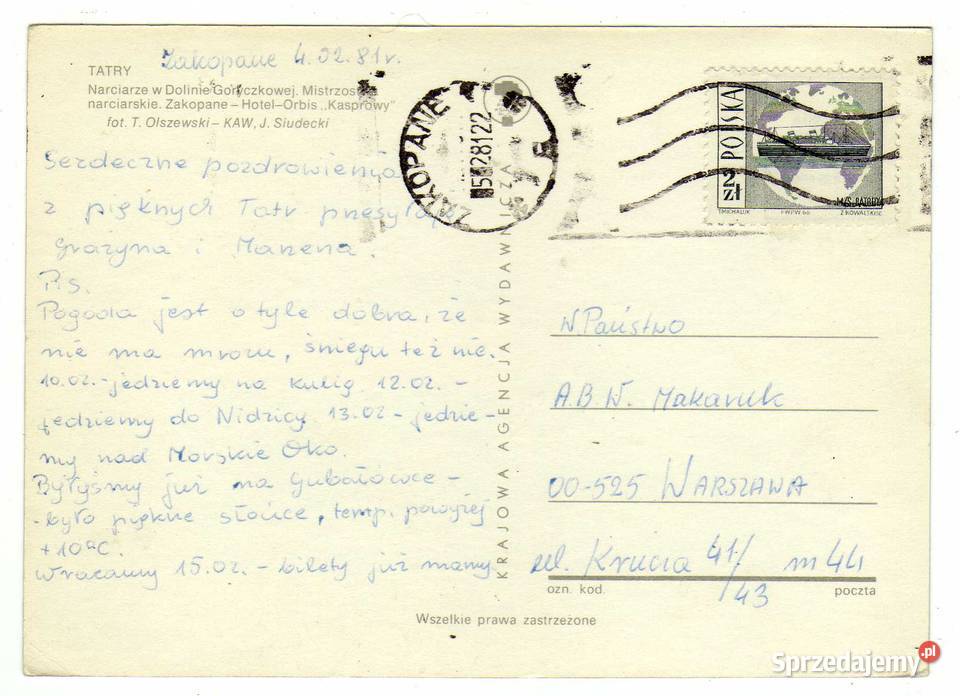 Zakopane 4.02.81r.
TATRY
Narciarze w Dolinie Goryczkowej. Mistrzos
narciarskie. Zakopane – Hotel–Orbis „Kasprowy"
fot. T. Olszewski – KAW, J. Siudecki
Serdeczne pozdrowienia
z pięknych Tatr przesyłają
Grażyna i Marzena.
P.s.
Pogoda jest o tyle dobra, że
nie ma mrozu, śniegu też nie.
10.02.-jedziemy na kulig. 12.02. –
jedziemy do Nidzicy 13.02 – jedzie-
my nad Morskie Oko.
Byłyśmy już na Gubałówce –
-było piękne słońce, temp. powyżej
+10°C.
Wracamy 15.02. – bilety już mamy.
KRAJOWA AGENCJA WYDAWNI
ZAKOPANE 1
POLSKA
2 zł
M/S BATORY
T.MICHALUK PWPW 66
W.Państwo
A.B.W. Makaruk
00-525 WARSZAWA
ul. Krucza 41/43 m 44
ozn. kod. poczta
Wszelkie prawa zastrzeżone
Sprzedajemy.pl